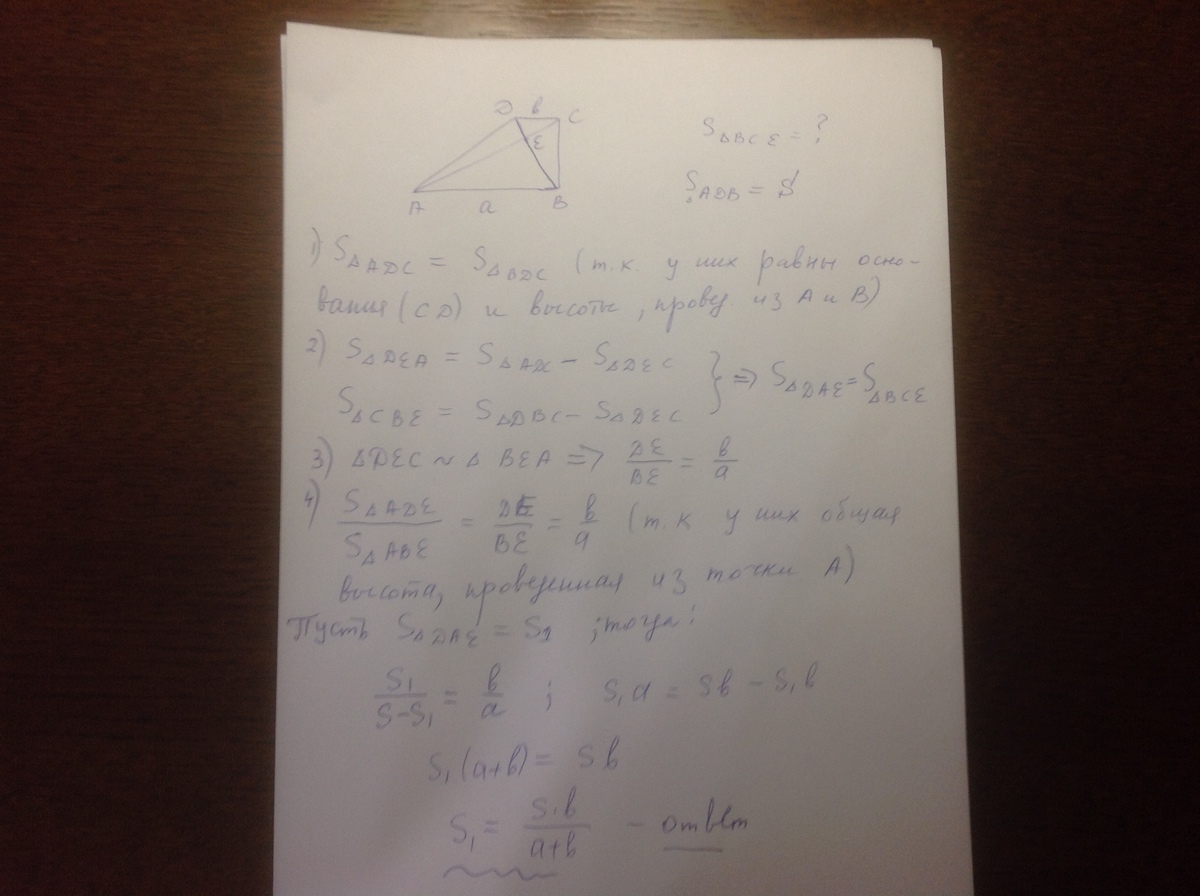 D в C
E
A a B
S△BCE = ?
S△ADB = S
1) S△ADC = S△BDC (т.к. у них равны осно-
вания (CD) и высоты, провед. из A и B)
2) S△DEA = S△ADC – S△DEC
S△CBE = S△DBC – S△DEC } => S△DAE = S△BCE
3) △DEC ~ △BEA => DE/BE = в/a
4) S△ADE/S△ABE = DE/BE = в/a (т.к у них общая
высота, проведенная из точки A)
Пусть S△DAE = S1 ; тогда:
S1/S–S1 = в/a ; S1a = Sв – S1в
S1(a+в) = Sв
S1 = S·в/a+в – ответ